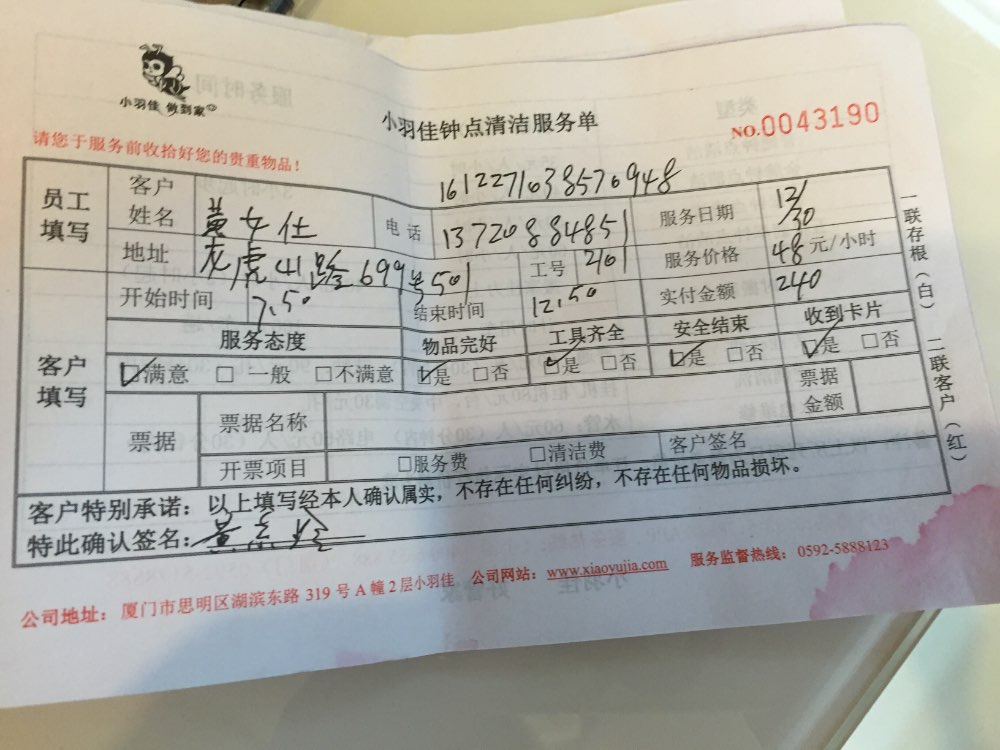 小羽佳 做到家
小羽佳钟点清洁服务单
NO.0043190
请您于服务前收拾好您的贵重物品！
1612271038570948
员工填写 客户姓名 黄女仕 电话 13720884851 服务日期 12/30
地址 龙虎山路699号501 工号 2101 服务价格 48元/小时
客户填写 开始时间 7.50 结束时间 12.50 实付金额 240
服务态度 物品完好 工具齐全 安全结束 收到卡片
☑满意 □一般 □不满意 ☑是 □否 ☑是 □否 ☑是 □否 ☑是 □否
票据 票据名称 票据金额
开票项目 □服务费 □清洁费 客户签名
客户特别承诺：以上填写经本人确认属实，不存在任何纠纷，不存在任何物品损坏。
特此确认签名：黄
一联存根（白） 二联客户（红）
公司地址：厦门市思明区湖滨东路 319 号 A 幢 2 层小羽佳 公司网站：www.xiaoyujia.com 服务监督热线：0592-5888123